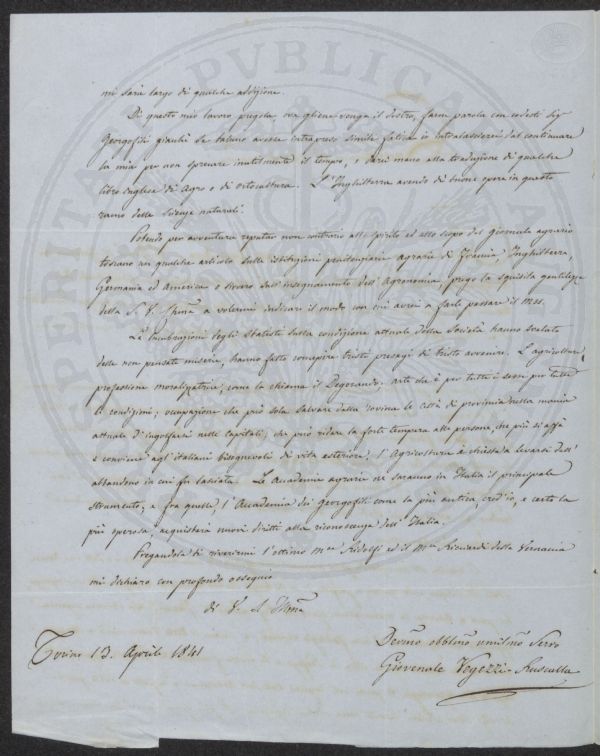 mi sarà largo di qualche adesione.
Di questo mio lavoro pregola, ove gliene venga il destro, farne parola con codesti Sig.
Georgofili giacchè se taluno avesse intrapreso simile fatica io intralascierei dal continuare
la mia per non sprecare inutilmente il tempo, e darei mano alla traduzione di qualche
libro inglese di Agro o di orticoltura. L'Inghilterra avendo di buone opere in questo
ramo delle scienze naturali.
Potendo per avventura reputar non contrario allo spirito ed allo scopo del giornale agrario
toscano un qualche articolo sulle istituzioni penitenziarie agrarie di Francia, Inghilterra,
Germania ed America o ovvero sull'insegnamento dell'Agronomia, prego la squisita gentilezza
della S. V. Illma a volermi indicare il modo con cui avrei a farle passare il mss.
Le lucubrazioni degli statisti sulla condizione attuale della Società hanno svelate
delle non pensate miserie, hanno fatto concepire tristi presagi di tristo avvenire. L'agricoltura
professione moralizzatrice, come la chiama il Degerando, arte che è per tutti i sessi per tutte
le condizioni; occupazione che può sola salvare dalla rovina le città di provincia nella mania
attuale d'ingolfarsi nelle capitali, che può ridar la forte tempera alle persone, che più si affà
e conviene agl'italiani bisognevoli di vita esteriore, l'Agricoltura è chiesta da levarsi dall'
abbandono in cui fu lasciata. Le Accademie agrarie ne saranno in Italia il principale
strumento, e fra quelle, l'Accademia dei Georgofili come la più antica, cred'io, e certo la
più operosa, acquisterà nuovi diritti alla riconoscenza dell'Italia.
Pregandola di riverirmi l'ottimo Mse Ridolfi ed il Mse Ricciardi della Vernaccia
mi dichiaro con profondo ossequio
di V. S. Illma
Devmo obblmo umilmo Servo
Torino 13. Aprile 1841
Giovenale Vegezzi-Ruscalla